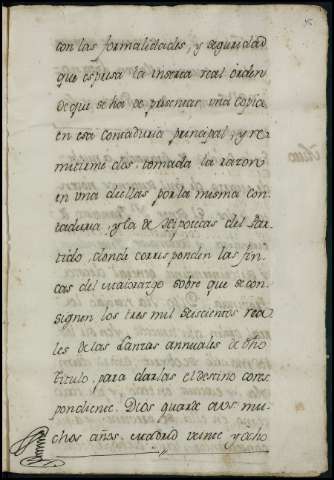 con las formalidades, y seguridad
que espresa la inserta real orden
de que se ha de presentar una copia
en esa contaduria principal, y re-
mitirme dos, tomada la razon
en una de ellas por la misma con-
taduria, y la de Hipotecas del Par-
tido, donde corresponden las fin-
cas del maiorazgo sobre que se con-
signen los tres mil seiscientos rea-
les de las Lanzas annuales de dho
titulo, para darlas el destino corres
pondiente. Dios guarde a vs mu-
chos años. Madrid veinte y ocho